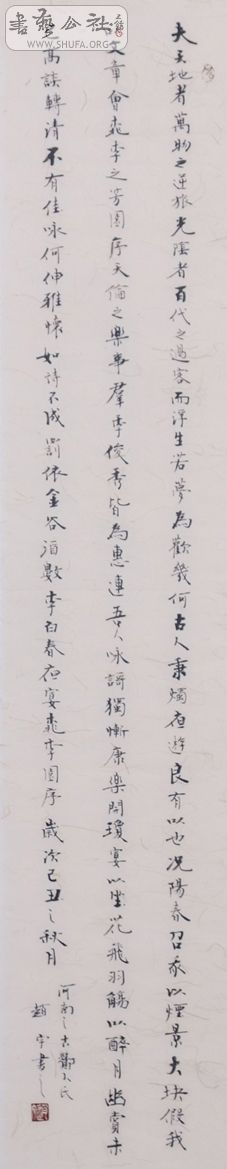 書藝公社
WWW.SHUFA.ORG
夫天地者萬物之逆旅光陰者百代之過客而浮生若夢為歡幾何古人秉燭夜遊良有以也況陽春召我以煙景大块假我
文章會桃李之芳園序天倫之樂事羣季俊秀皆為惠連吾人咏謌獨慚康樂開瓊宴以坐花飛羽觴以醉月幽賞未
高談轉清不有佳咏何伸雅懷如詩不成罰依金谷酒數李白春夜宴桃李園序歲次己丑之秋月
河南之古鄭人氏
趙宇書之